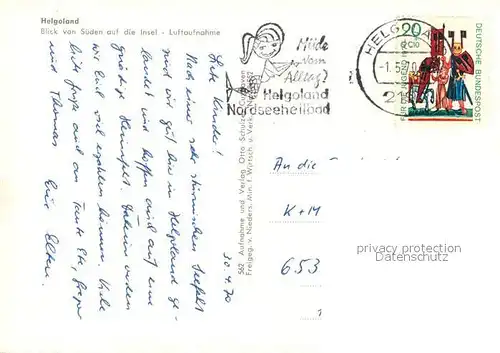 Helgoland
Blick von Süden auf die Insel - Luftaufnahme
30.4.70
Liebe Kinder!
Nach einer sehr stürmischen Seefahrt
sind wir gut hier in Helgoland ge-
landet und hoffen auch auf eine
günstige Heimfahrt. Daheim werden
wir Euch viel erzählen können. Viele
liebe Grüße auch an Tante
und Thomas Eure Eltern.
562 Aufnahme und Verlag Otto Schulze
Freigeg. v. Nieders. Min. f. Wirtsch. u. Verk.
Müde
vom
Alltag?
Helgoland
Nordseeheilbad
HELGOLA
-1.5.70
20
DEUTSCHE BUNDESPOST
An die
K+M
653
privacy protection
Datenschutz